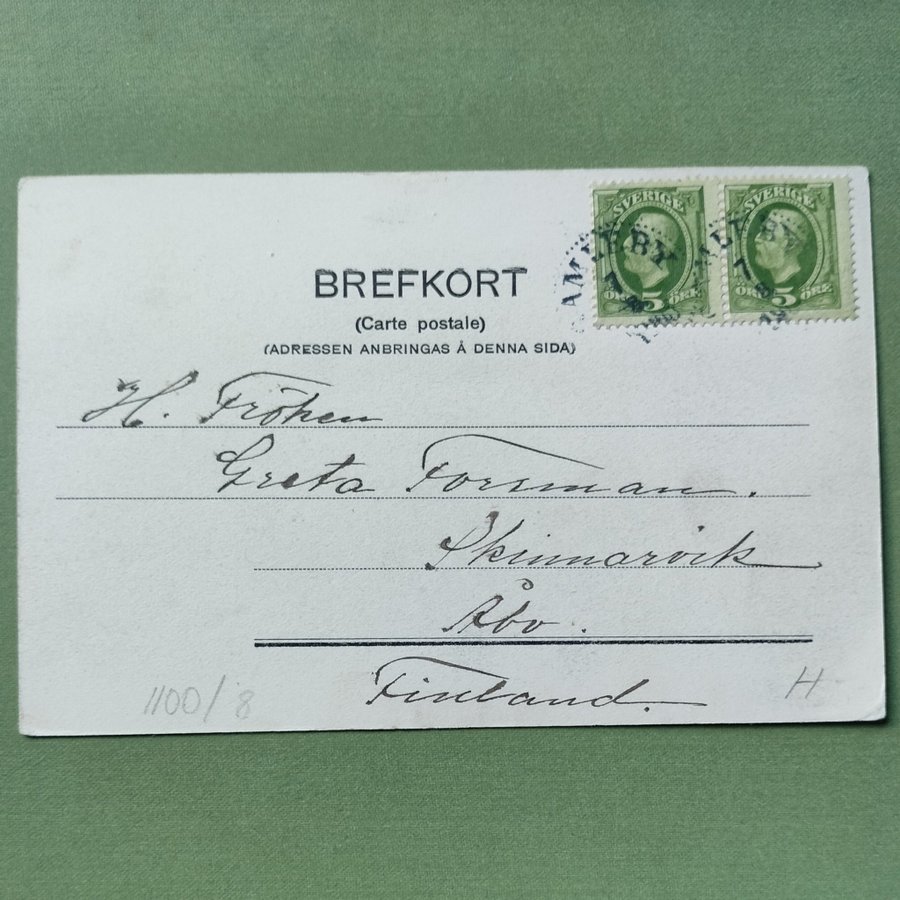 SVERIGE SVERIGE
GAMLEBY GAMLEBY
7 7
8 8
ÖRE 5 ÖRE ÖRE 5 ÖRE
BREFKORT
(Carte postale)
(ADRESSEN ANBRINGAS Å DENNA SIDA)
H. Fröken
Greta Forsman.
Skinnarvik
Åbo.
Finland.
1100/8
H